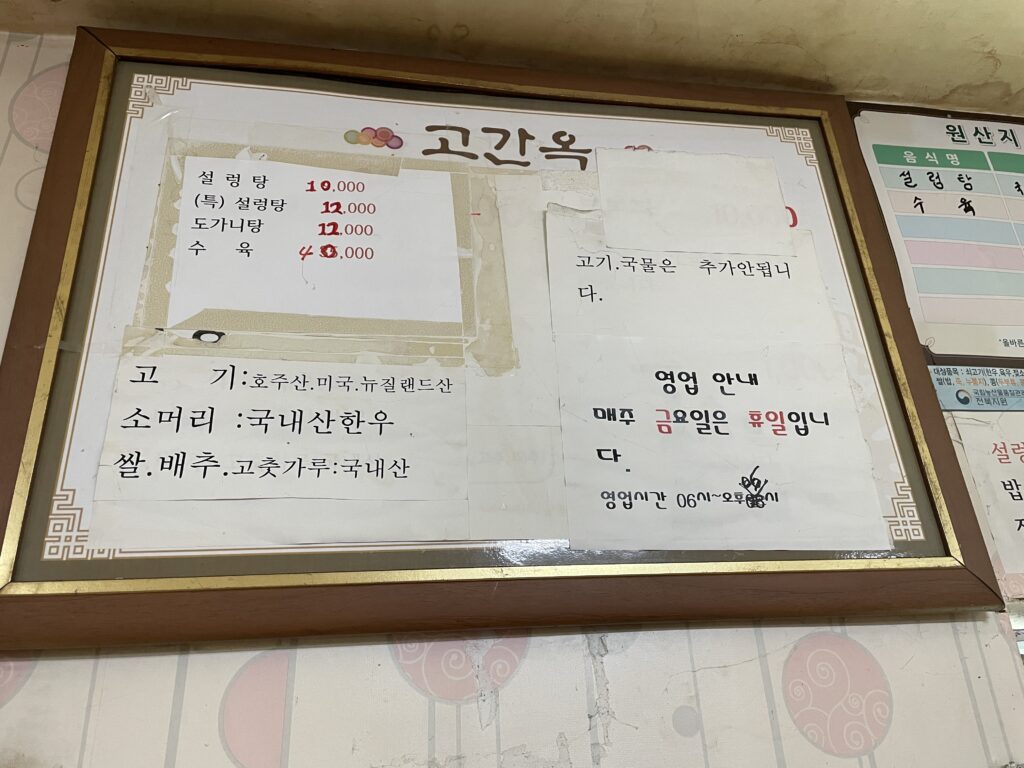 고간옥
설 렁 탕 10,000
(특) 설렁탕 12,000
도가니탕 12,000
수 육
고기.국물은 추가안됩니
다.
고 기:호주산.미국.뉴질랜드산
소머리 :국내산한우
쌀.배추.고춧가루:국내산
영업 안내
매주 금요일은 휴일입니
다.
영업시간 06시~오후 시
원산지
음식명
설 렁 탕
수 육
대상품목 : 쇠고기(한우, 육우, 젖소
전북지원
설렁
밥